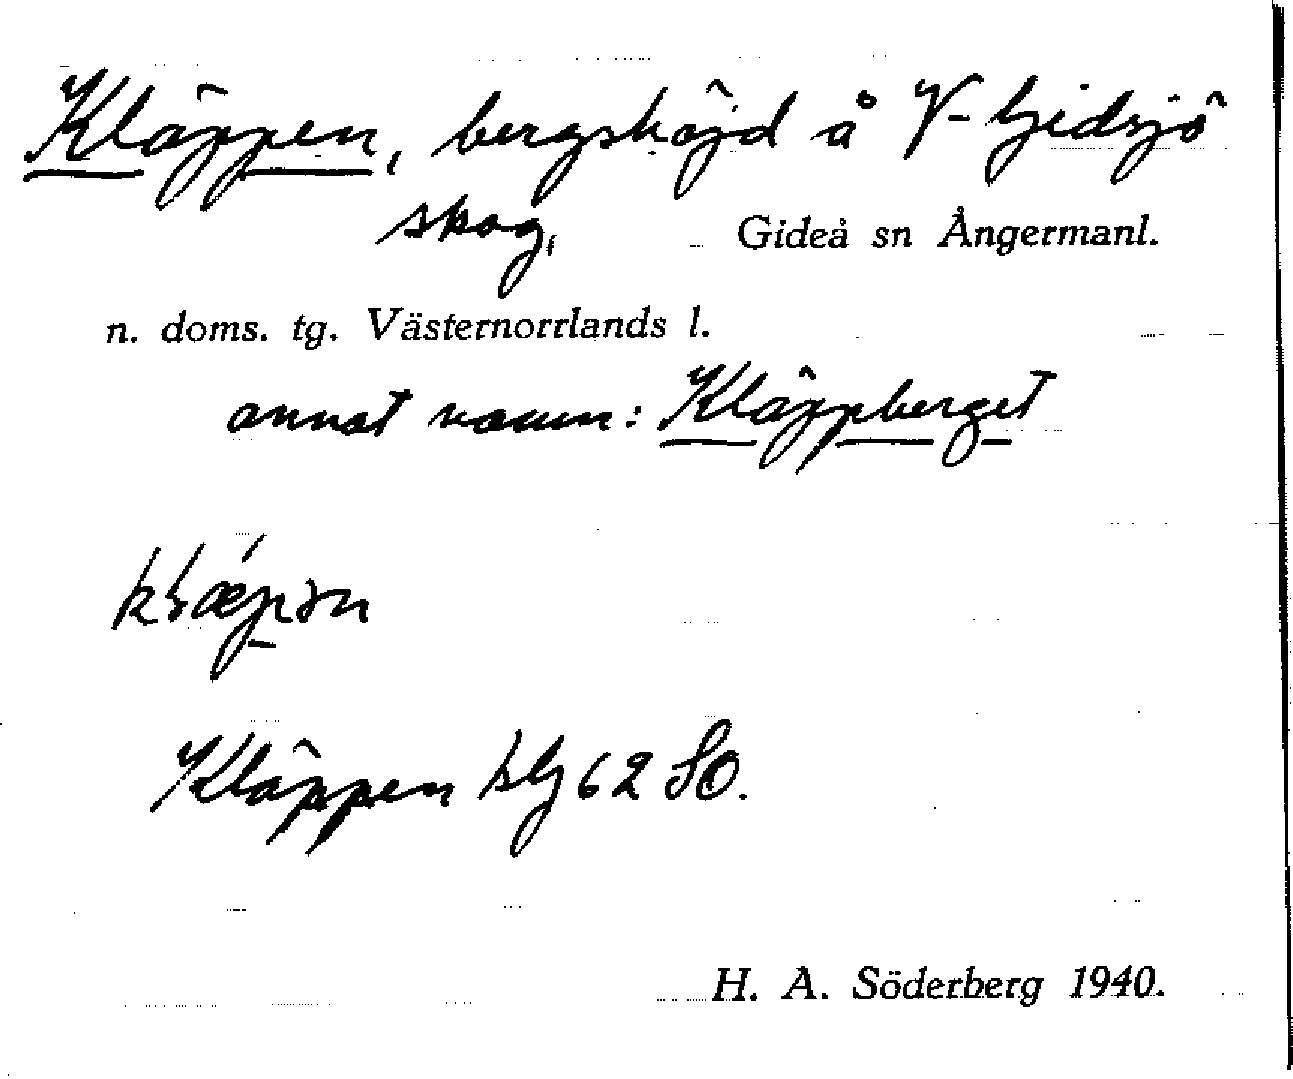 Kläppen, bergshöjd å V-Gidsjö
skog, Gideå sn Ångermanl.
n. doms. tg. Västernorrlands l.
annat namn: Kläppberget
Kläppen blg 62 SO.
H. A. Söderberg 1940.